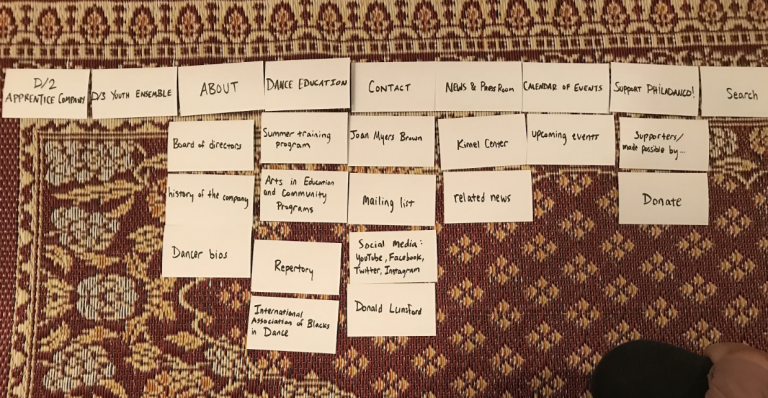 D/2
APPRENTICE COMPANY
D/3 YOUTH ENSEMBLE
ABOUT
DANCE EDUCATION
CONTACT
NEWS & PRESS ROOM
CALENDAR OF EVENTS
SUPPORT PHILADANCO!
Search
Board of directors
Summer training
program
Joan Myers Brown
Kimel Center
upcoming events
Supporters/
made possible by...
history of the company
Arts in Education
and Community
Programs
Mailing list
related news
Donate
Dancer bios
Repertory
Social media:
YouTube, Facebook,
Twitter, Instagram
International
Association of Blacks
in Dance
Donald Lunsford